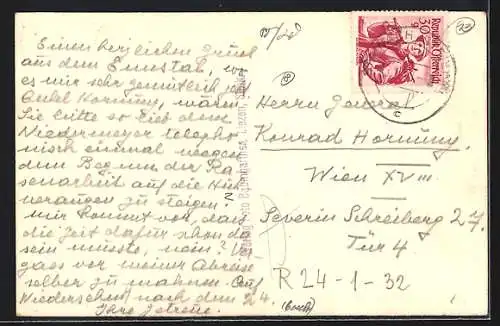 Einen herzlichen Gruß
aus dem Ennstal, wo
es mir sehr gemütlich geht
Onkel Hornung, wären
Sie bitte so lieb dem
Niedermeyer telepho-
nisch einmal wegen
dem Beginn der Ra-
senarbeit auf die Hüh-
neraugen zu steigen?
mir kommt vor, dass
die Zeit dafür schon da
sein müsste, nein? Ver-
gass vor meiner Abreise
selber zu mahnen. Auf
Wiedersehen nach dem 24.
Ihre getreue.
Liezen
30 g
Republik Österreich
Herrn General
Konrad Hornung.
Wien XVIII
Severin Schreiberg 27.
Tür 4
R24-1-32